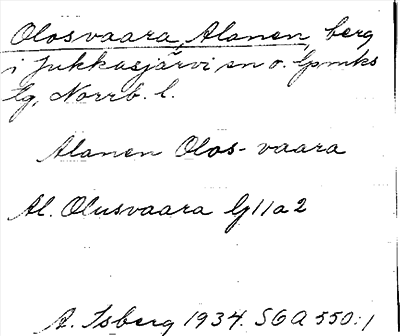 Olosvaara, Alanen, berg
i Jukkasjärvi sn o. lpmks
lg, Norrb. l.
Alanen Olos-vaara
Al. Olusvaara lg 11 a 2
A. Isberg 1934. SOA 550:1